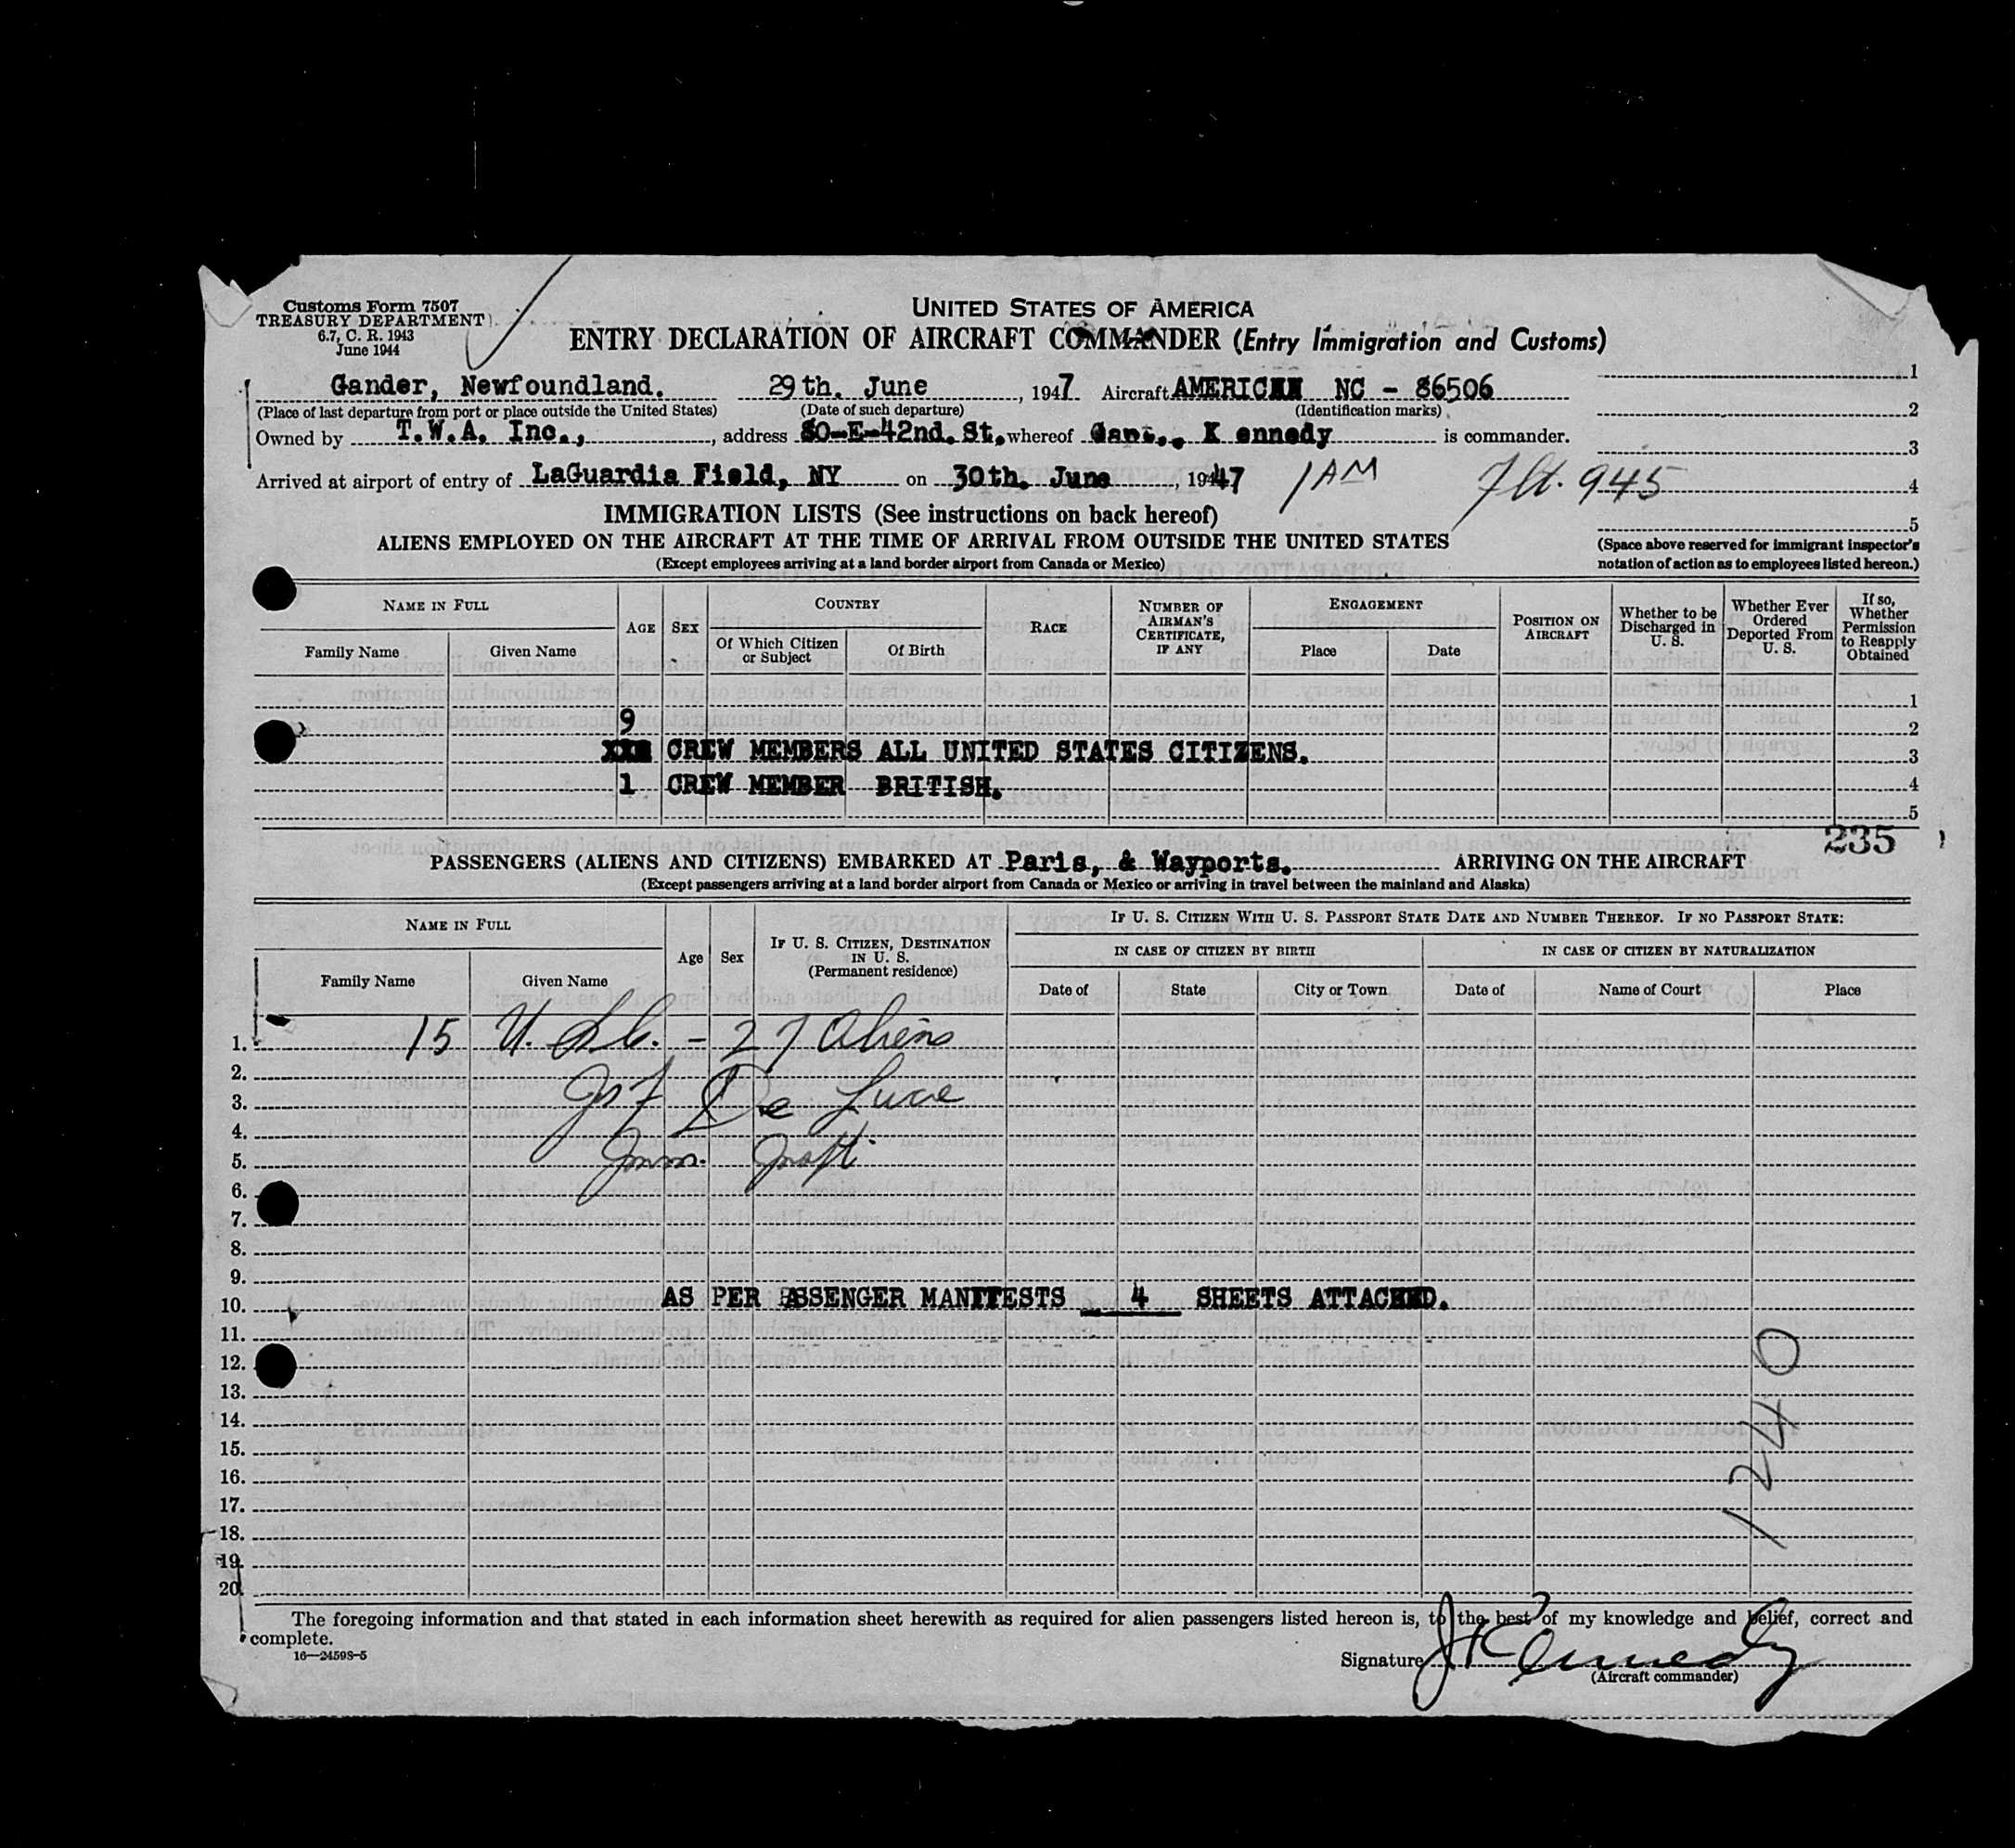 Customs Form 7507
TREASURY DEPARTMENT
6.7, C. R. 1943
June 1944
UNITED STATES OF AMERICA
ENTRY DECLARATION OF AIRCRAFT COMMANDER (Entry Immigration and Customs)
Gander, Newfoundland. 29th. June , 1947 Aircraft AMERICAN NC - 86506
(Place of last departure from port or place outside the United States) (Date of such departure) (Identification marks)
Owned by T.W.A. Inc., , address 80-E-42nd. St. whereof Capt., K ennedy is commander.
Arrived at airport of entry of LaGuardia Field, NY on 30th. June , 1947 1AM Flt. 945
1
2
3
4
5
(Space above reserved for immigrant inspector's notation of action as to employees listed hereon.)
IMMIGRATION LISTS (See instructions on back hereof)
ALIENS EMPLOYED ON THE AIRCRAFT AT THE TIME OF ARRIVAL FROM OUTSIDE THE UNITED STATES
(Except employees arriving at a land border airport from Canada or Mexico)
NAME IN FULL
Family Name
Given Name
AGE
SEX
COUNTRY
Of Which Citizen or Subject
Of Birth
RACE
NUMBER OF AIRMAN'S CERTIFICATE, IF ANY
ENGAGEMENT
Place
Date
POSITION ON AIRCRAFT
Whether to be Discharged in U. S.
Whether Ever Ordered Deported From U. S.
If so, Whether Permission to Reapply Obtained
1
9 2
CREW MEMBERS ALL UNITED STATES CITIZENS. 3
1 CREW MEMBER BRITISH. 4
5
235
PASSENGERS (ALIENS AND CITIZENS) EMBARKED AT Paris, & Wayports. ARRIVING ON THE AIRCRAFT
(Except passengers arriving at a land border airport from Canada or Mexico or arriving in travel between the mainland and Alaska)
NAME IN FULL
Family Name
Given Name
Age
Sex
IF U. S. CITIZEN, DESTINATION IN U. S. (Permanent residence)
IF U. S. CITIZEN WITH U. S. PASSPORT STATE DATE AND NUMBER THEREOF. IF NO PASSPORT STATE:
IN CASE OF CITIZEN BY BIRTH
IN CASE OF CITIZEN BY NATURALIZATION
Date of
State
City or Town
Date of
Name of Court
Place
1. 15 U. S. C. - 27 Aliens
2.
3. De Luce
4.
5. Imm. Insp
6.
7.
8.
9.
10. AS PER PASSENGER MANIFESTS 4 SHEETS ATTACHED.
11.
12.
13.
14.
15.
16.
17.
18.
19.
20.
1240
The foregoing information and that stated in each information sheet herewith as required for alien passengers listed hereon is, to the best of my knowledge and belief, correct and
complete.
16—24598-5
Signature J Kennedy
(Aircraft commander)